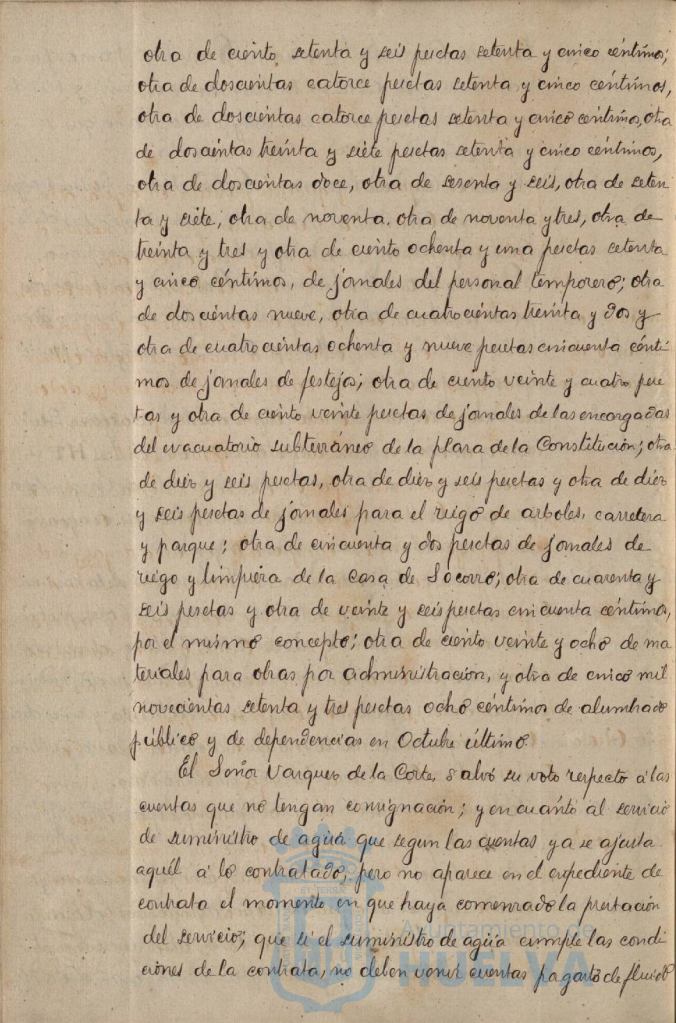 otra de ciento setenta y seis pesetas setenta y cinco céntimos;
otra de doscientas catorce pesetas setenta y cinco céntimos,
otra de doscientas catorce pesetas setenta y cinco centimos, otra
de doscientas treinta y siete pesetas setenta y cinco céntimos,
otra de doscientas doce, otra de sesenta y seis, otra de seten
ta y siete, otra de noventa, otra de noventa y tres, otra de
treinta y tres y otra de ciento ochenta y una pesetas setenta
y cinco céntimos, de jornales del personal temporero; otra
de doscientas nueve, otra de cuatrocientas treinta y dos y
otra de cuatrocientas ochenta y nueve pesetas cincuenta cénti
mos de jornales de festejos; otra de ciento veinte y cuatro pese
tas y otra de ciento veinte pesetas de jornales de las encargadas
del evacuatorio subterráneo de la plaza de la Constitución; otra
de diez y seis pesetas, otra de diez y seis pesetas y otra de diez
y seis pesetas de jornales para el riego de arboles, carretera
y parque; otra de cincuenta y dos pesetas de jornales de
riego y limpieza de la Casa de Socorro; otra de cuarenta y
seis pesetas y otra de veinte y seis pesetas cincuenta céntimos,
por el mismo concepto; otra de ciento veinte y ocho de ma
teriales para obras por administración, y otra de cinco mil
novecientas setenta y tres pesetas ocho céntimos de alumbrado
público y de dependencias en Octubre último.
El Señor Vazquez de la Corte, salvó su voto respecto á las
cuentas que no tengan consignación; y en cuanto al servicio
de suministro de agua que segun las cuentas ya se ajusta
aquél á lo contratado, pero no aparece en el expediente de
contrata el momento en que haya comenzado la prestación
del servicio; que si el suministro de agua cumple las condi
ciones de la contrata, no deben venir cuentas pa gastos de fluido
Ayuntamiento de
HUELVA